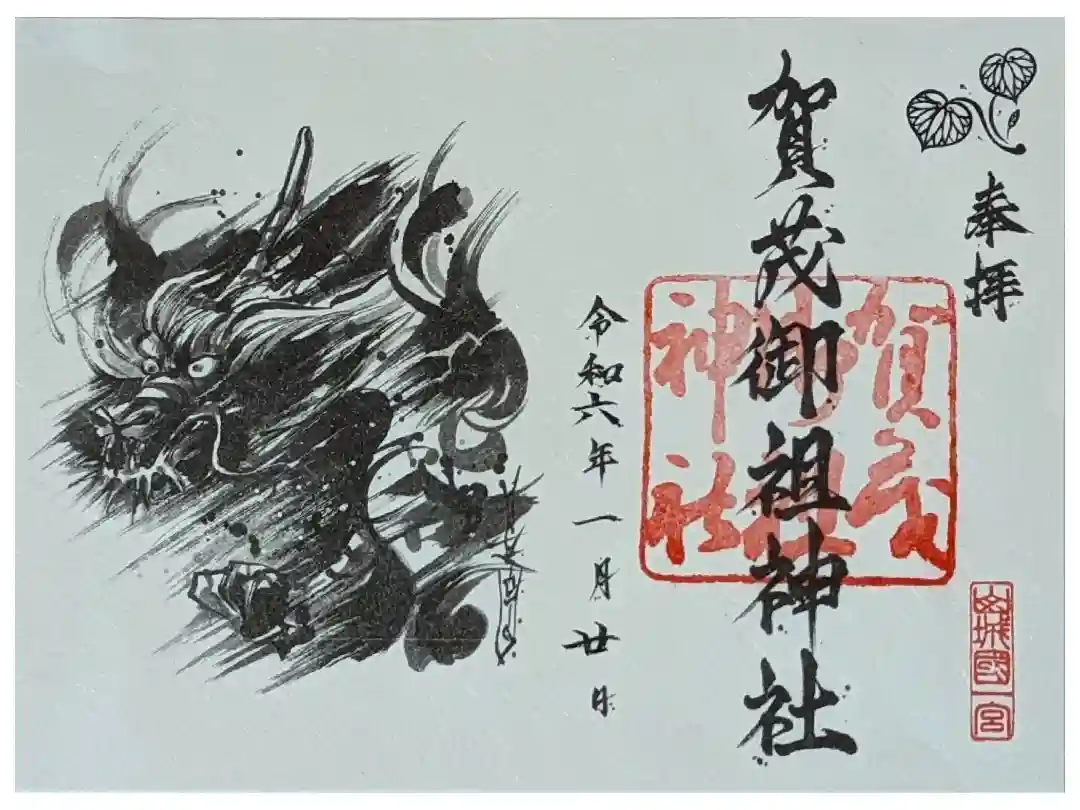 奉拝
賀茂御祖神社
賀茂
御祖
神社
山城國一宮
令和六年一月廿日